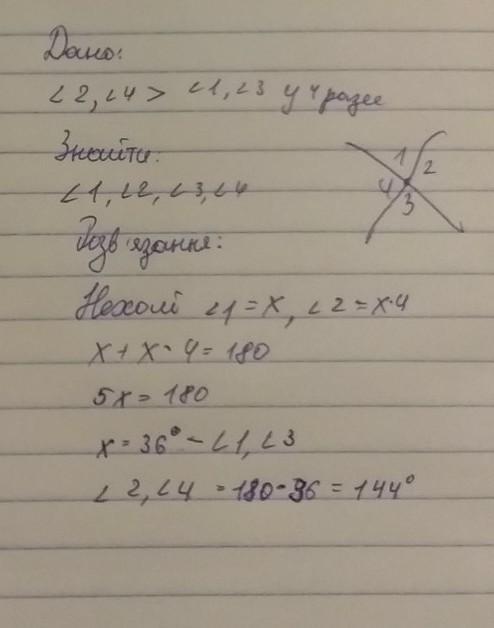 Дано:
∠2, ∠4 > ∠1, ∠3 у 4 рази
Знайти:
∠1, ∠2, ∠3, ∠4
1
2
4
3
Розв'язання:
Нехай ∠1 = x, ∠2 = x·4
x + x · 4 = 180
5x = 180
x = 36° - ∠1, ∠3
∠2, ∠4 = 180 - 36 = 144°